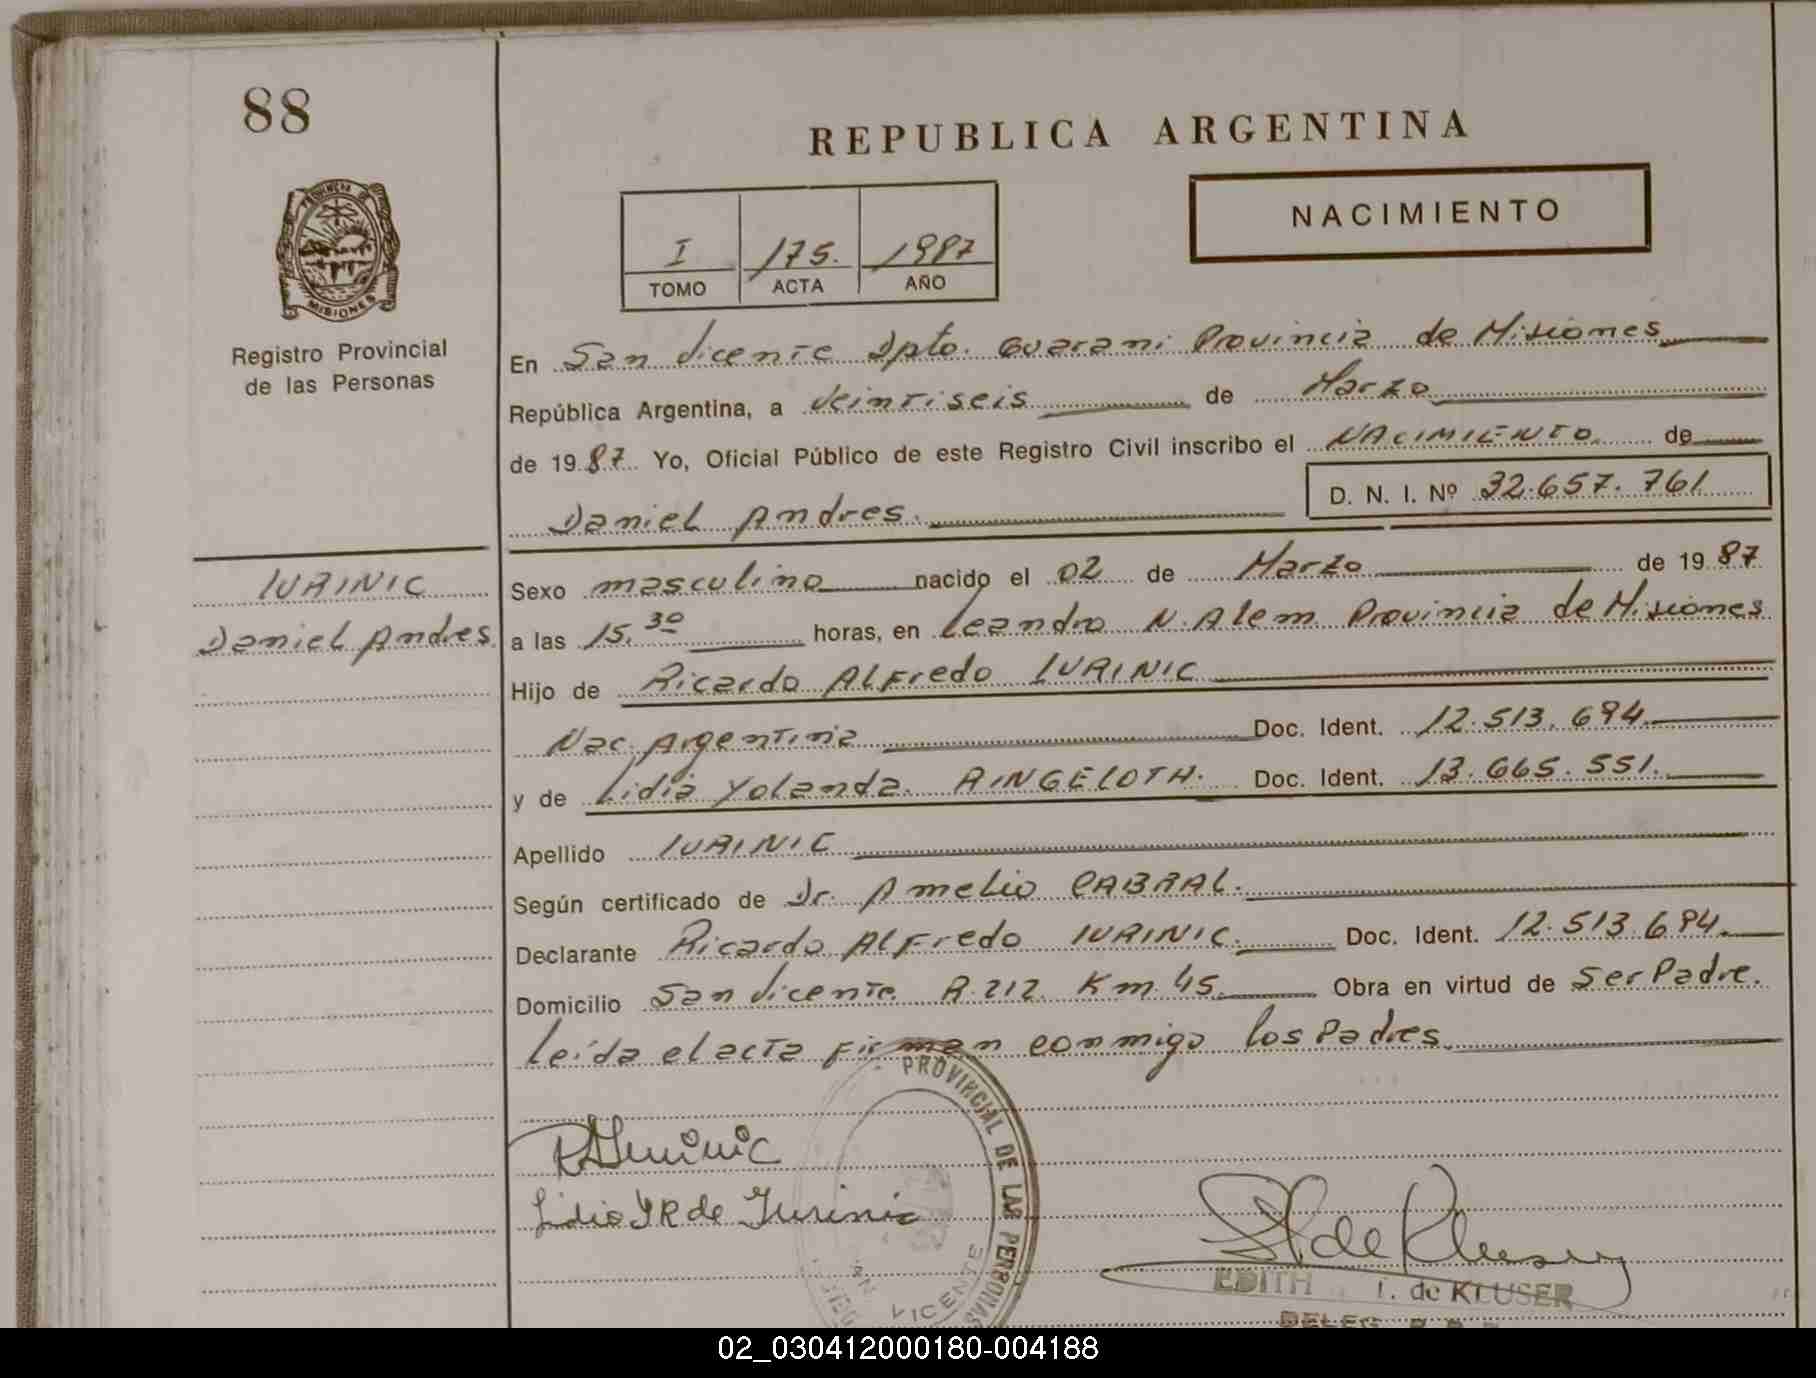 88
REPUBLICA ARGENTINA
PROVINCIA DE
MISIONES
Registro Provincial
de las Personas
I 175. 1987
TOMO ACTA AÑO
NACIMIENTO
En San Vicente Dpto. Guarani Provincia de Misiones
República Argentina, a Veintiseis de Marzo
de 1987. Yo, Oficial Público de este Registro Civil inscribo el NACIMIENTO de
D. N. I. Nº 32.657.761
Daniel Andres.
IURINIC
Daniel Andres
Sexo masculino nacido el 02 de Marzo de 1987
a las 15.30 horas, en Leandro N. Alem Provincia de Misiones
Hijo de Ricardo Alfredo IURINIC
Nac. Argentina Doc. Ident. 12.513.694
y de Lidia Yolanda RINGELOTH. Doc. Ident. 13.665.551.
Apellido IURINIC
Según certificado de Dr. Amelio CABRAL.
Declarante Ricardo Alfredo IURINIC. Doc. Ident. 12.513.694.
Domicilio San Vicente R.212 Km 45. Obra en virtud de Ser Padre.
Leída el acta firman conmigo los Padres.
PROVINCIAL DE LAS PERSONAS
VICENTE
Lidia Y R de Iurinic
EDITH I. de KLUSER
DELEG.
02_030412000180-004188